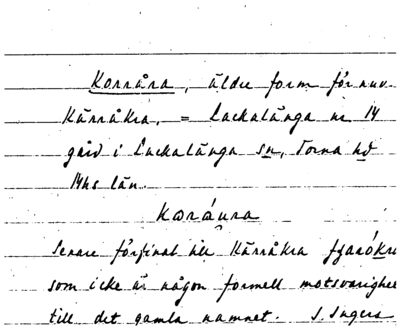 Korråra, äldre form för nuv.
Kärråkra, = Lackalänga nr 14
gård i Lackalänga sn, Torna hd
Mhs län.
Senare förfinat till Kärråkra
som icke är någon formell motsvarighe
till det gamla namnet. S. Ingers